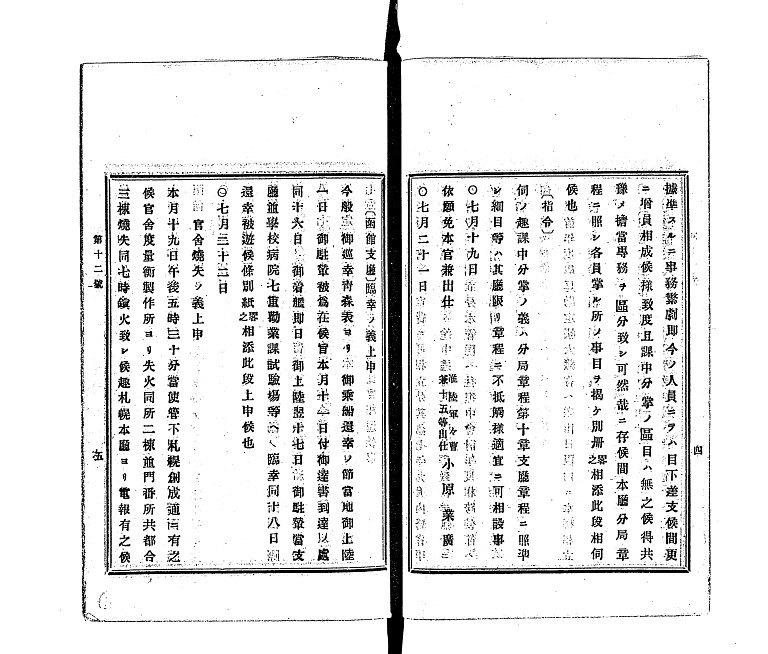 據準スルニ事務繁劇即今ノ人員ニテハ目下差支候間更
ニ増員相成候樣致度且課中分掌ノ區目ハ無之候得共
豫メ擔當專務ヲ區分致シ可然哉ニ存候間本廳分局章
程ニ照シ各員掌ル所ノ事目ヲ揭ケ別册畧之相添此段相伺
候也
(指令)
伺ノ趣課中分掌ノ義ハ分局章程第十章支廳章程ニ照準
シ細目等ハ其廳限リ章程ニ不抵觸樣適宜ニ可相設事
〇七月十九日
依願免本官兼出仕 准陸軍 曹兼十五等出仕 小原 廣
〇七月二十一日
(函館支廳)臨幸ノ義上申
今般 御巡幸青森表ヨリ 御乘船還幸ノ節當地御上陸
一日 御駐輦被爲在候官本月十 日付御達書到達以處
同十六日 御着艦即日 御上陸翌十七日 御駐輦當支
廳並學校病院七重勸業課試驗場等 臨幸同十八日
還幸被遊候條別紙畧之相添此段上申候也
〇七月二十二日
官舍燒失ノ義上申
本月十九日午後五時三十分當使管下札幌創成通西有之
候官舍度量衡製作所ヨリ失火同所二棟並門番所共都合
三棟燒失同七時鎮火致シ候趣札幌本廳ヨリ電報有之候
第十二號
五
四